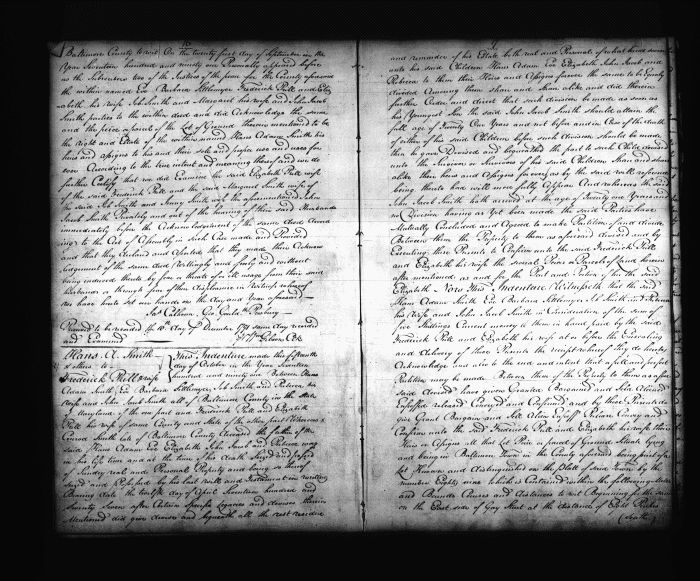 Baltimore County to wit On the twenty first day of September in the
Year Seventeen hundred and ninety one Personally appeared before
us the Subscribers two of the Justices of the peace for the County aforesaid
the within named Eve Barbara Littlemyer Frederick Pell and Eliz
abeth his wife Job Smith and Margaret his wife and John Jacob
Smith parties to the within deed and did Acknowledge the same
and the piece or parcel of the Lot of Ground therein mentioned to be
the right and Estate of the within named Hans Adam Smith his
heirs and assigns to his and their sole and proper use and uses for
ever According to the true intent and meaning thereof and we do
further Certify that we did Examine the said Elizabeth Pell wife
of the said Frederick Pell and the said Margaret Smith wife of
the said Job Smith and wife of the aforementioned John
Jacob Smith Privately and out of the hearing of their said Husbands
immediately before the Acknowledgement of the same deed Accord
ing to the Act of Assembly in such Case made and Provided
and that they declared and that they made their Acknow
ledgement of the same deed Willingly and freely and without
being induced thereto by fear or threats of ill usage from their said
husbands or through fear of their displeasure in Witness whereof
we have hereto set our hands on the day and Year aforesaid
Jas Calhoun Geo
Received to be recorded the 10 day of December 1791 same day recorded
and Examined Wm Gibson Clk
Hans A. Smith
& others to
Frederick Pell & wife
This Indenture made this fifteenth
day of October in the Year Seventeen
hundred and ninety one Between Hans
Adam Smith, Eve Barbara Littlemyer, Job Smith and Rebecca his
Wife and John Jacob Smith all of Baltimore County in the State
of Maryland of the one part and Frederick Pell and Elizabeth
Pell his wife of same County and State of the other part Whereas
Conrod Smith late of Baltimore County deceased the father of the
said Hans Adam Eve Elizabeth Job Jacob and Rebecca was
in his life time and at the time of his death Seized and possessed
of Sundry real and Personal Property and being so thereof
Seized and Possessed by his last Will and Testament in writing
Bearing date the twelfth day of April Seventeen hundred and
Seventy Seven after Certain Specific legacies and devises therein
Mentioned did give devise and bequeath all the rest residue
and remainder of his Estate both real and Personal of what kind soever
unto his said Children Hans Adam Eve Elizabeth John Jacob and
Rebecca to them their Heirs and Assigns forever the same to be Equally
divided Among them share and share alike and did therein
further Order and direct that such division be made as soon as
his Youngest Son the said John Jacob Smith should attain the
full age of Twenty One Years and not before and in Case of the death
of either of his said Children before such division should be made
then he devised and bequeathed the part to such Child devised
unto the Survivor or Survivors of his said Children Share and share
alike their heirs and Assigns forever as by the said will reference
being thereto had will more fully Appear And whereas the said
John Jacob Smith hath arrived at the age of twenty One Years and
no Division having as Yet been made the said Parties have
Mutually Concluded and Agreed to make Partition of and divide
Between them the Property to them as aforesaid devised and by
Executing these Presents to Confirm unto the said Frederick Pell
and Elizabeth his wife the several Piece or Parcels of Land herein
after mentioned as and for the Part and Portion of her the said
Elizabeth Now this Indenture Witnesseth that the said
Hans Adam Smith Eve Barbara Littlemyer Job Smith and Rebecca
his Wife and John Jacob Smith in Consideration of the sum of
five Shillings Current money to them in hand paid by the said
Frederick Pell and Elizabeth his wife at or before the Executing
and delivery of these Presents the receipt whereof they do hereby
Acknowledge and also to the end and intent that a full and perfect
Partition may be made Between them of the Property to them as afore
said devised have given Granted Bargained and Sold Aliened
Enfeoffed released Conveyed and Confirmed and by these Presents do
give Grant Bargain and Sell Alien Enfeoff Release Convey and
Confirm unto the said Frederick Pell and Elizabeth his wife their
Heirs or Assigns all that Lot Piece or parcel of Ground Situate lying
and being in Baltimore Town in the County aforesaid being part of a
Lot Known and distinguished on the Plott of said Town by the
number Eighty nine which is Contained within the following Metes
and Bounds Courses and distances to wit Beginning for the same
on the East side of Gay Street at the distance of Eight Perches
(South)